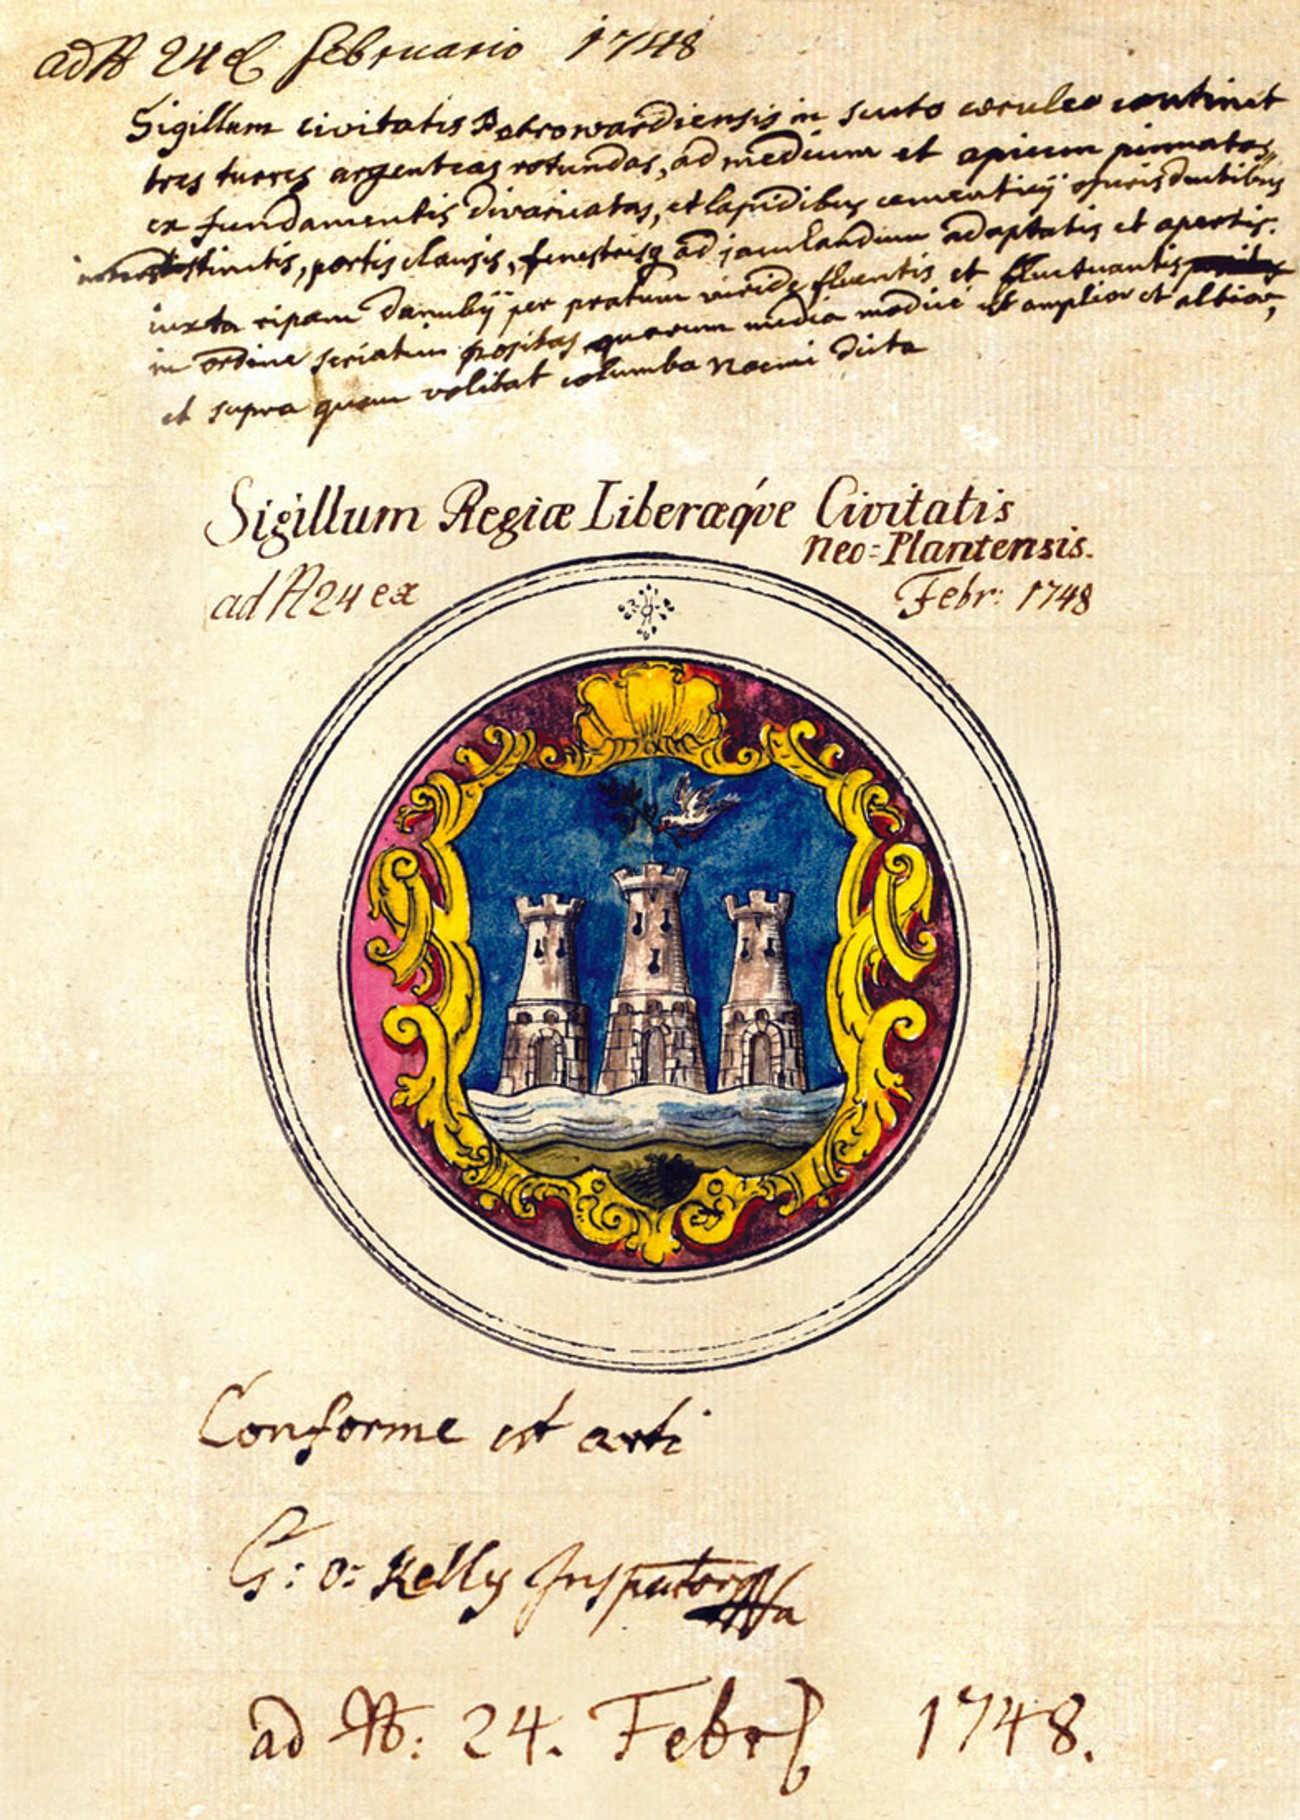 ad No 24 ex februario 1748
Sigillum civitatis Petrowardiensis in scuto coeruleo continet
tres turres argenteas rotundas, ad medium et apicem pinnatas,
ex fundamentis divaricatas, et lapidibus
portis clausis, fenestrisq ad jaculandum adaptatis et apertis.
iuxta ripam Danubij per pratum viride fluentis et fluctuantis
in ordine seriatim positas quarum media modice et amplior et altior,
et supra quam volitat columba Noemi dicta
Sigillum Regiæ Liberæq́ve Civitatis
Neo=Plantensis.
ad No 24 ex Febr: 1748
Conforme est arti
G: o: Kelly Inspector
ad No: 24. Febr 1748.